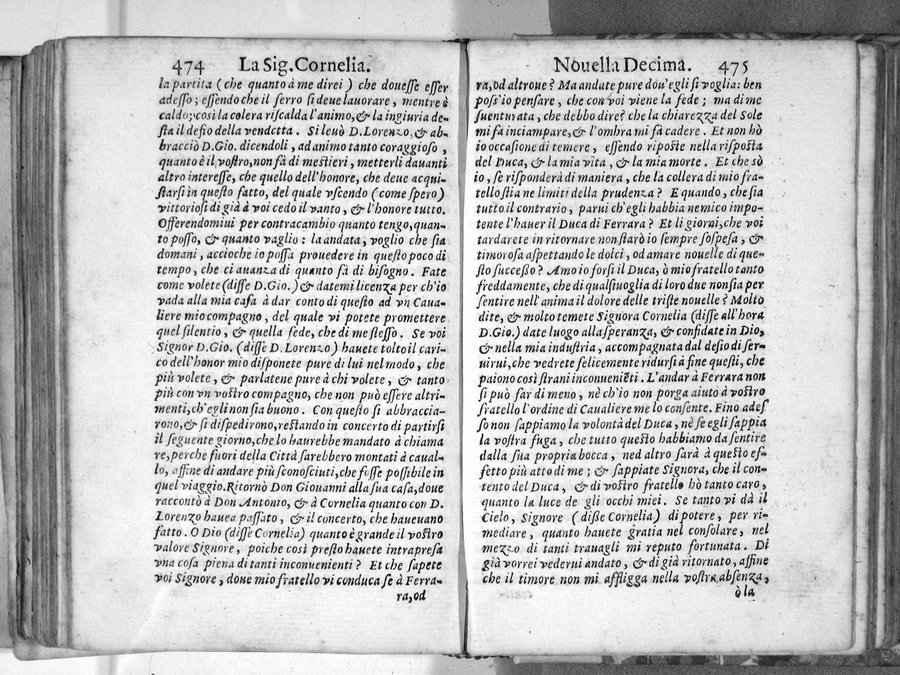 474 La Sig. Cornelia.
la partita (che quanto à me direi) che douesse esser
adesso; essendo che il ferro si deue lauorare, mentre è
caldo; così la colera riscalda l'animo, & la ingiuria de-
sta il desio della vendetta. Si leuò D. Lorenzo, & ab-
bracciò D. Gio. dicendoli, ad animo tanto coraggioso,
quanto è il vostro, non fà di mestieri, metterli dauanti
altro interesse, che quello dell'honore, che deue acqui-
starsi in questo fatto, del quale vscendo (come spero)
vittoriosi di già à voi cedo il vanto, & l'honore tutto.
Offerendomiui per contracambio quanto tengo, quan-
to posso, & quanto vaglio: la andata, voglio che sia
domani, accioche io possa prouedere in questo poco di
tempo, che ci auanza di quanto fà di bisogno. Fate
come volete (disse D. Gio.) & datemi licenza per ch'io
vada alla mia casa à dar conto di questo ad vn Caua-
liere mio compagno, del quale vi potete promettere
quel silentio, & quella fede, che di me stesso. Se voi
Signor D. Gio. (disse D. Lorenzo) hauete tolto il cari-
co dell'honor mio disponete pure di lui nel modo, che
più volete, & parlatene pure à chi volete, & tanto
più con vn vostro compagno, che non può essere altri-
menti, ch'egli non sia buono. Con questo si abbraccia-
rono, & si dispedirono, restando in concerto di partirsi
il seguente giorno, che lo haurebbe mandato à chiama
re, perche fuori della Città sarebbero montati à caual-
lo, affine di andare più sconosciuti, che fosse possibile in
quel viaggio. Ritornò Don Giouanni alla sua casa, doue
raccontò à Don Antonio, & à Cornelia quanto con D.
Lorenzo hauea passato, & il concerto, che haueuano
fatto. O Dio (disse Cornelia) quanto è grande il vostro
valore Signore, poiche così presto hauete intrapresa
vna cosa piena di tanti inconuenienti? Et che sapete
voi Signore, doue mio fratello vi conduca se à Ferra-
ra, od
Nouella Decima. 475
ra, od altroue? Ma andate pure dou'egli si voglia: ben
poss'io pensare, che con voi viene la fede; ma di me
suenturata, che debbo dire? che la chiarezza del Sole
mi fà inciampare, & l'ombra mi fà cadere. Et non hò
io occasione di temere, essendo riposte nella risposta
del Duca, & la mia vita, & la mia morte. Et che sò
io, se risponderà di maniera, che la collera di mio fra-
tello stia ne limiti della prudenza? E quando, che sia
tutto il contrario, parui ch'egli habbia nemico impo-
tente l'hauer il Duca di Ferrara? Et li giorni, che voi
tardarete in ritornare non starò io sempre sospesa, &
timorosa aspettando le dolci, od amare nouelle di que-
sto successo? Amo io forsi il Duca, ò mio fratello tanto
freddamente, che di qualsiuoglia di loro due non sia per
sentire nell'anima il dolore delle triste nouelle? Molto
dite, & molto temete Signora Cornelia (disse all'hora
D. Gio.) date luogo alla speranza, & confidate in Dio,
& nella mia industria, accompagnata dal desio di ser-
uirui, che vedrete felicemente ridursi à fine questi, che
paiono così strani inconueniẽti. L'andar à Ferrara non
si può far di meno, nè ch'io non porga aiuto à vostro
fratello l'ordine di Caualiere me lo consente. Fino ades
so non sappiamo la volontà del Duca, nè se egli sappia
la vostra fuga, che tutto questo habbiamo da sentire
dalla sua propria bocca, ned altro sarà à questo ef-
fetto più atto di me; & sappiate Signora, che il con-
tento del Duca, & di vostro fratello hò tanto caro,
quanto la luce de gli occhi miei. Se tanto vi dà il
Cielo, Signore (disse Cornelia) di potere, per ri-
mediare, quanto hauete gratia nel consolare, nel
mezzo di tanti trauagli mi reputo fortunata. Di
già vorrei vederui andato, & di già ritornato, affine
che il timore non mi affligga nella vostra absenza,
ò la